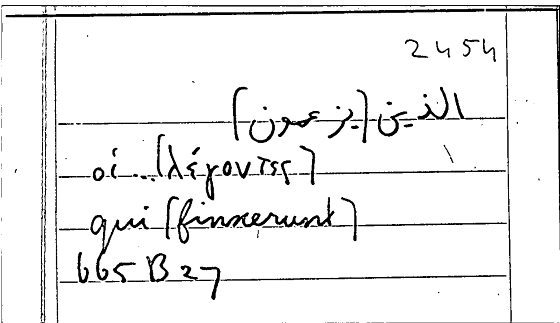 2454
الذين [يزعمون]
οἱ...[λέγοντες]
qui [finxerunt]
665 B 27